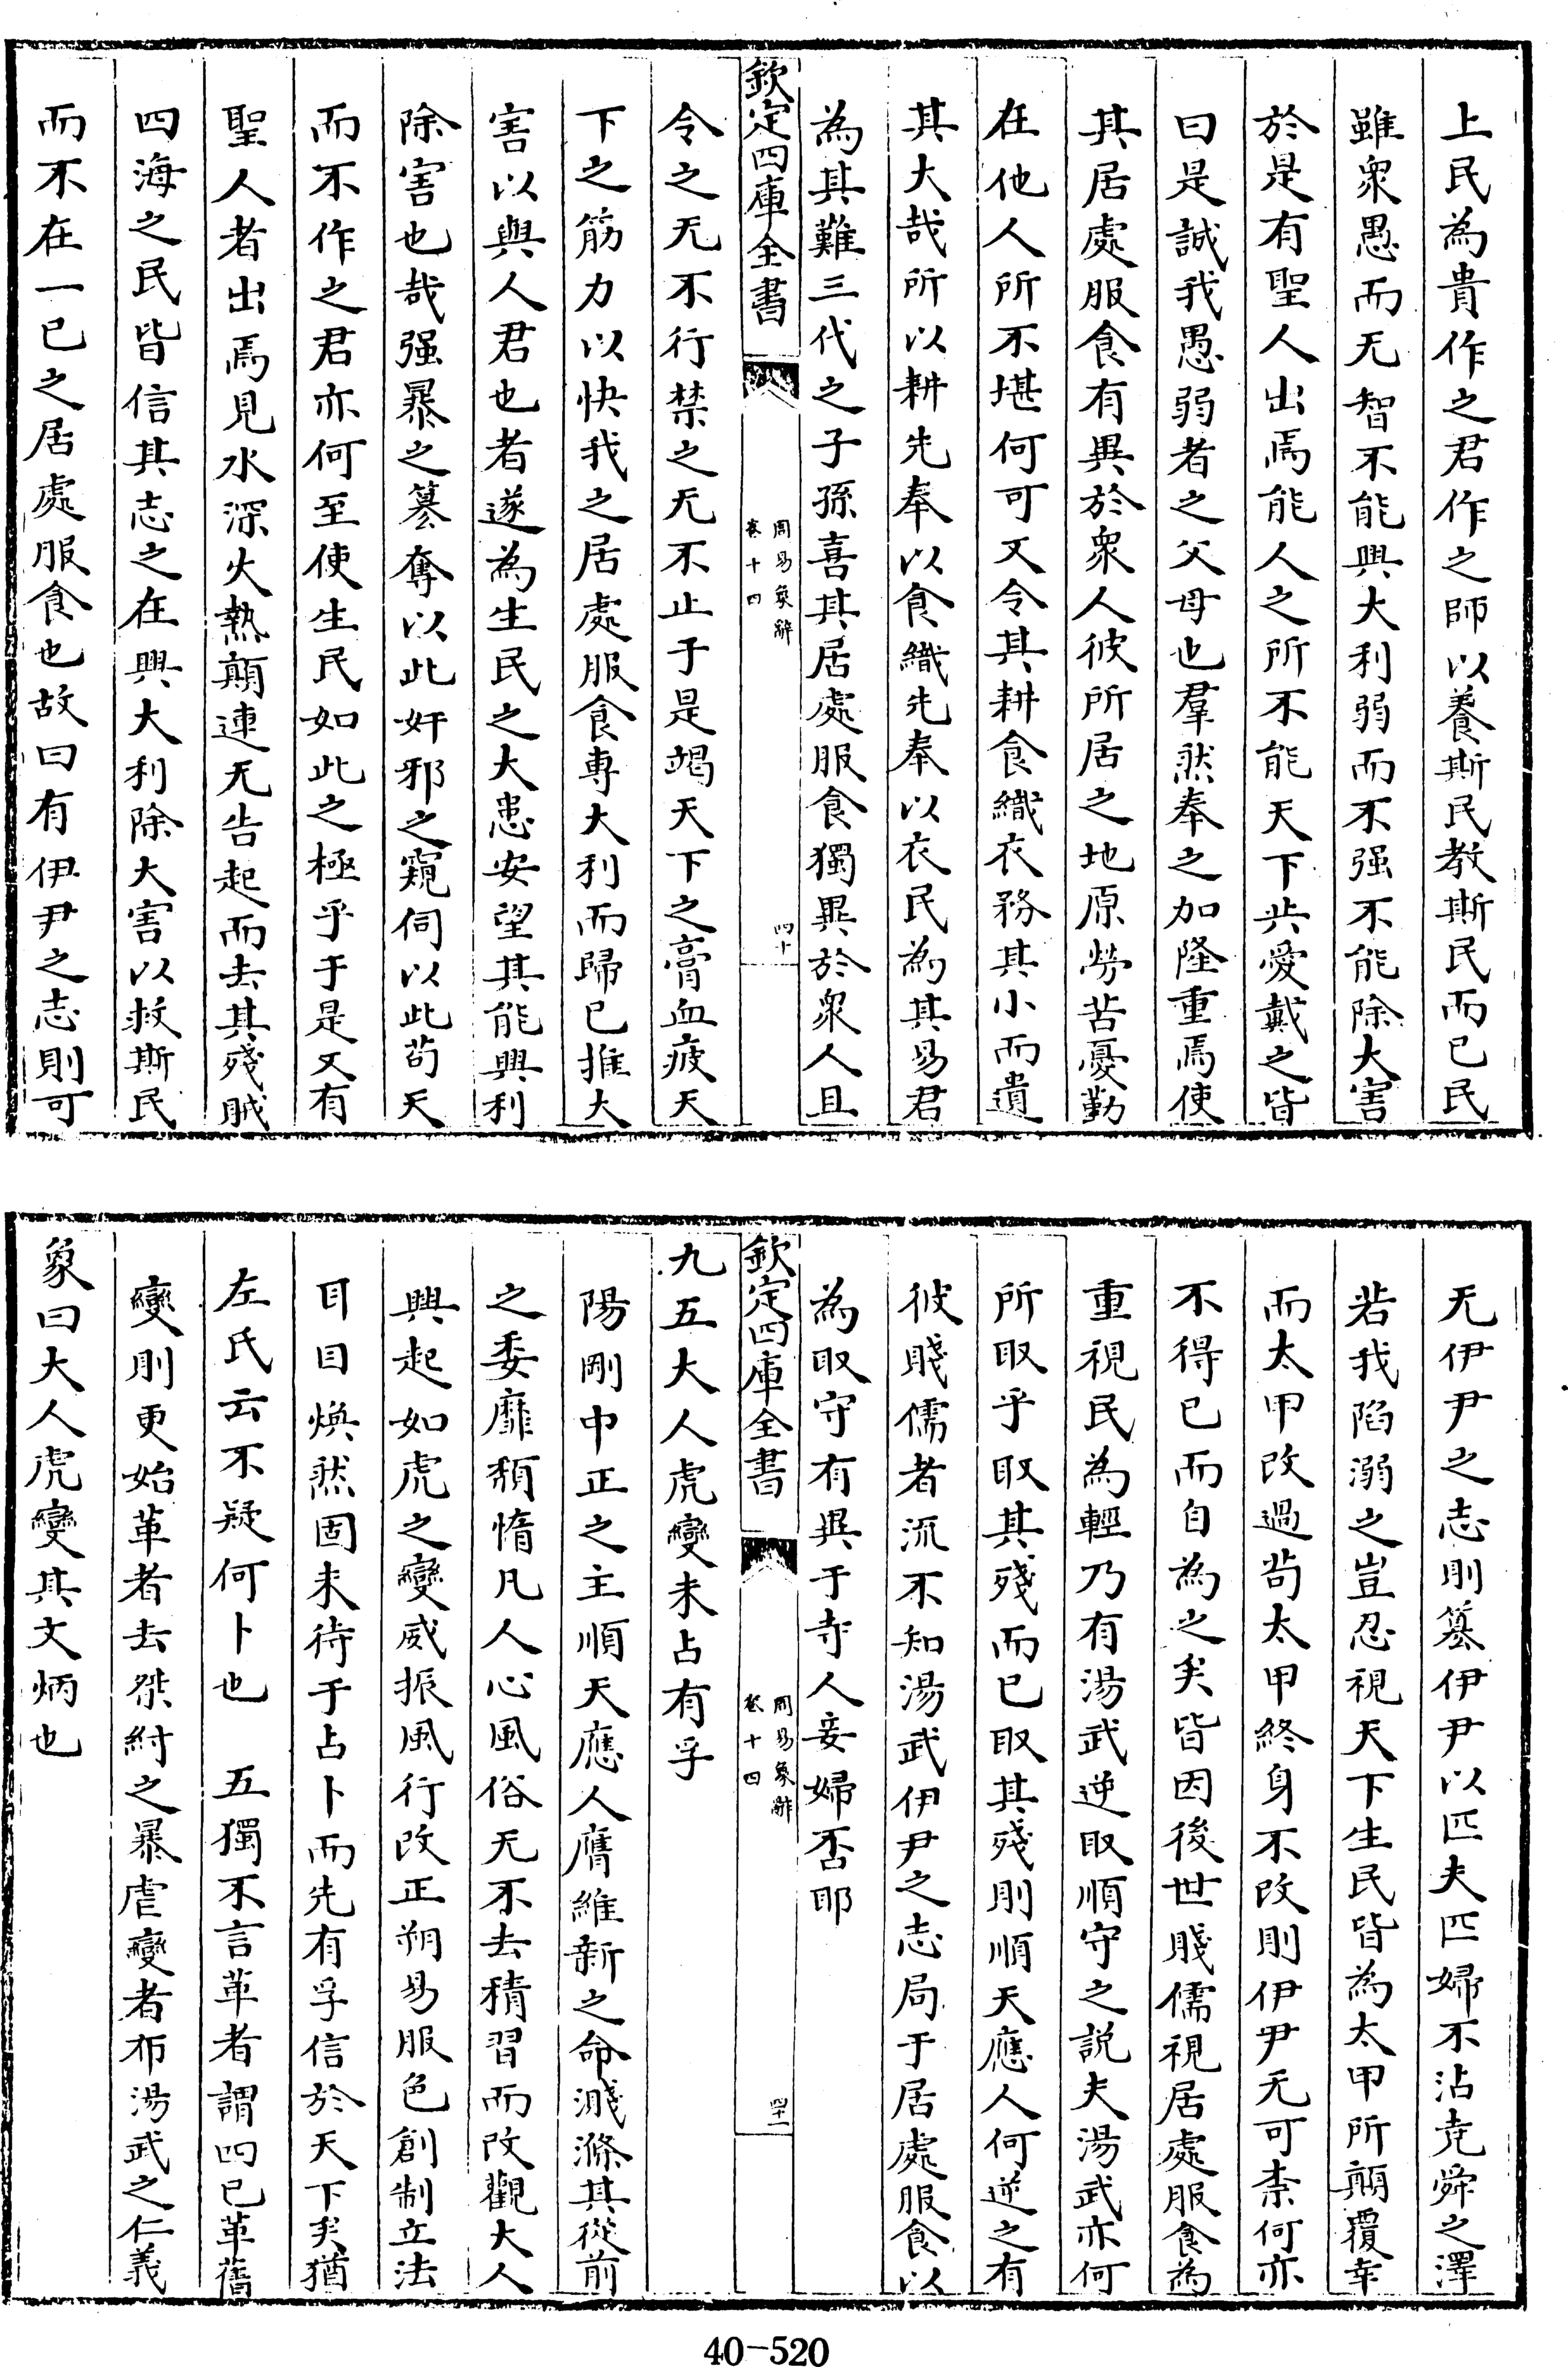 上民為貴作之君作之師以養斯民教斯民而已民
雖衆愚而无智不能興大利弱而不强不能除大害
於是有聖人出焉能人之所不能天下共愛戴之皆
曰是誠我愚弱者之父母也羣然奉之加隆重焉使
其居處服食有異於衆人彼所居之地原勞苦憂勤
在他人所不堪何可又令其耕食織衣務其小而遺
其大哉所以耕先奉以食織先奉以衣民為其易君
為其難三代之子孫喜其居處服食獨異於衆人且
欽定四庫全書
周易象辭
卷十四
四十
令之无不行禁之无不止于是竭天下之膏血疲天
下之筋力以快我之居處服食専大利而歸已推大
害以與人君也者遂為生民之大患安望其能興利
除害也哉强暴之簒奪以此奸邪之窺伺以此茍天
而不作之君亦何至使生民如此之極乎于是又有
聖人者出焉見水深火熱顛連无告起而去其殘賊
四海之民皆信其志之在興大利除大害以救斯民
而不在一已之居處服食也故曰有伊尹之志則可
无伊尹之志則簒伊尹以匹夫匹婦不沾堯舜之澤
若我陷溺之豈忍視天下生民皆為太甲所顛覆幸
而太甲改過茍太甲終身不改則伊尹无可柰何亦
不得已而自為之矣皆因後世賤儒視居處服食為
重視民為輕乃有湯武逆取順守之説夫湯武亦何
所取乎取其殘而已取其殘則順天應人何逆之有
彼賤儒者流不知湯武伊尹之志局于居處服食以
為取守有異于寺人妾婦否耶
欽定四庫全書
周易象辭
卷十四
四十一
九五大人虎變未占有孚
陽剛中正之主順天應人膺維新之命濺滌其從前
之委靡頽惰凡人心風俗无不去積習而改觀大人
興起如虎之變威振風行改正朔易服色創制立法
耳目煥然固未待于占卜而先有孚信於天下矣猶
左氏云不疑何卜也　五獨不言革者謂四已革舊
變則更始革者去桀紂之暴虐變者布湯武之仁義
象曰大人虎變其文炳也
40-520